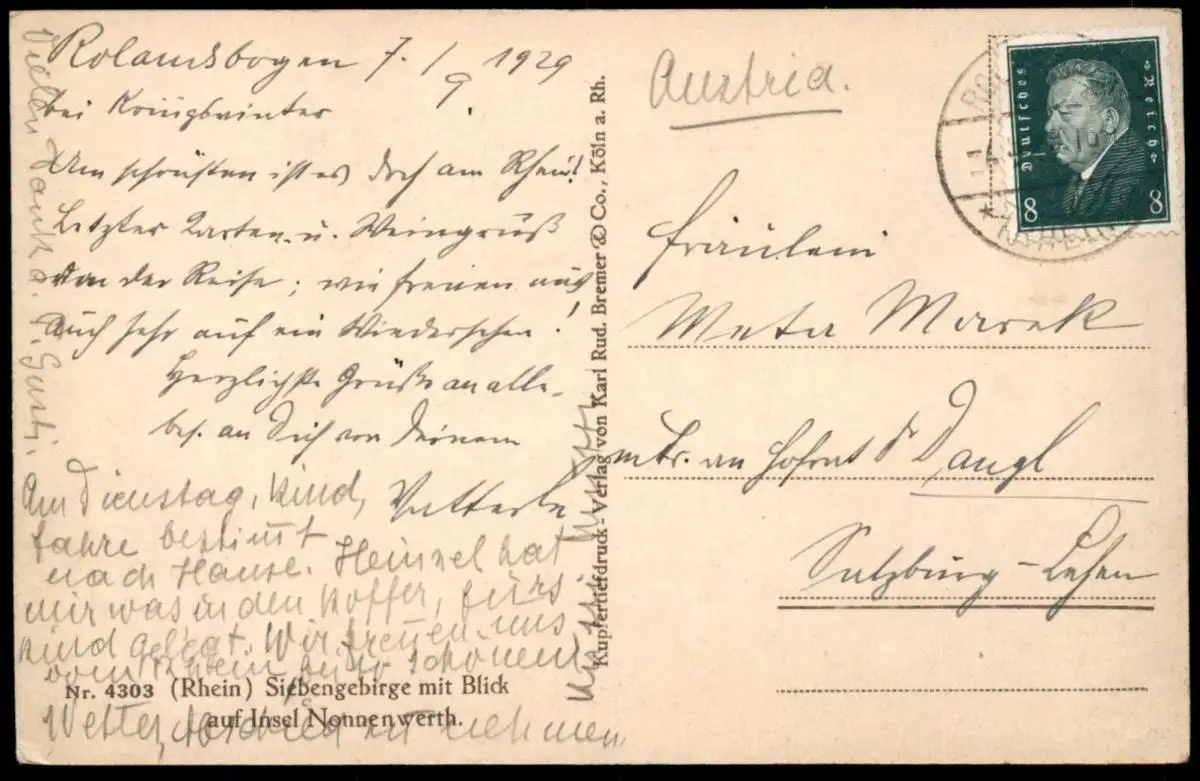 Rolandsbogen 7./9. 1929
bei Königswinter
Am schönsten ist es doch am Rhein!
Letzter Karten u. Weingruß
von der Reise; wir freuen uns
auch sehr auf ein Wiedersehen!
Herzlichste Grüße an alle,
bes. an Dich von Deinem
Vetterle
Am Dienstag, Kind,
fahre bestimmt
nach Hause. Heinzel hat
mir was in den Koffer, fürs
Kind gelegt. Wir freuen uns
vom Rhein bei so schönem
Wetter, Abschied zu nehmen
Vielen Dank
Gusti.
Nr. 4303 (Rhein) Siebengebirge mit Blick
auf Insel Nonnenwerth.
Kupfertiefdruck-Verlag von Karl Rud. Bremer & Co., Köln a. Rh.
Austria.
Deutsches Reich
8 8
Fräulein
Meta Marek
bei Hofrat Dr Dangl
Salzburg-Lehen